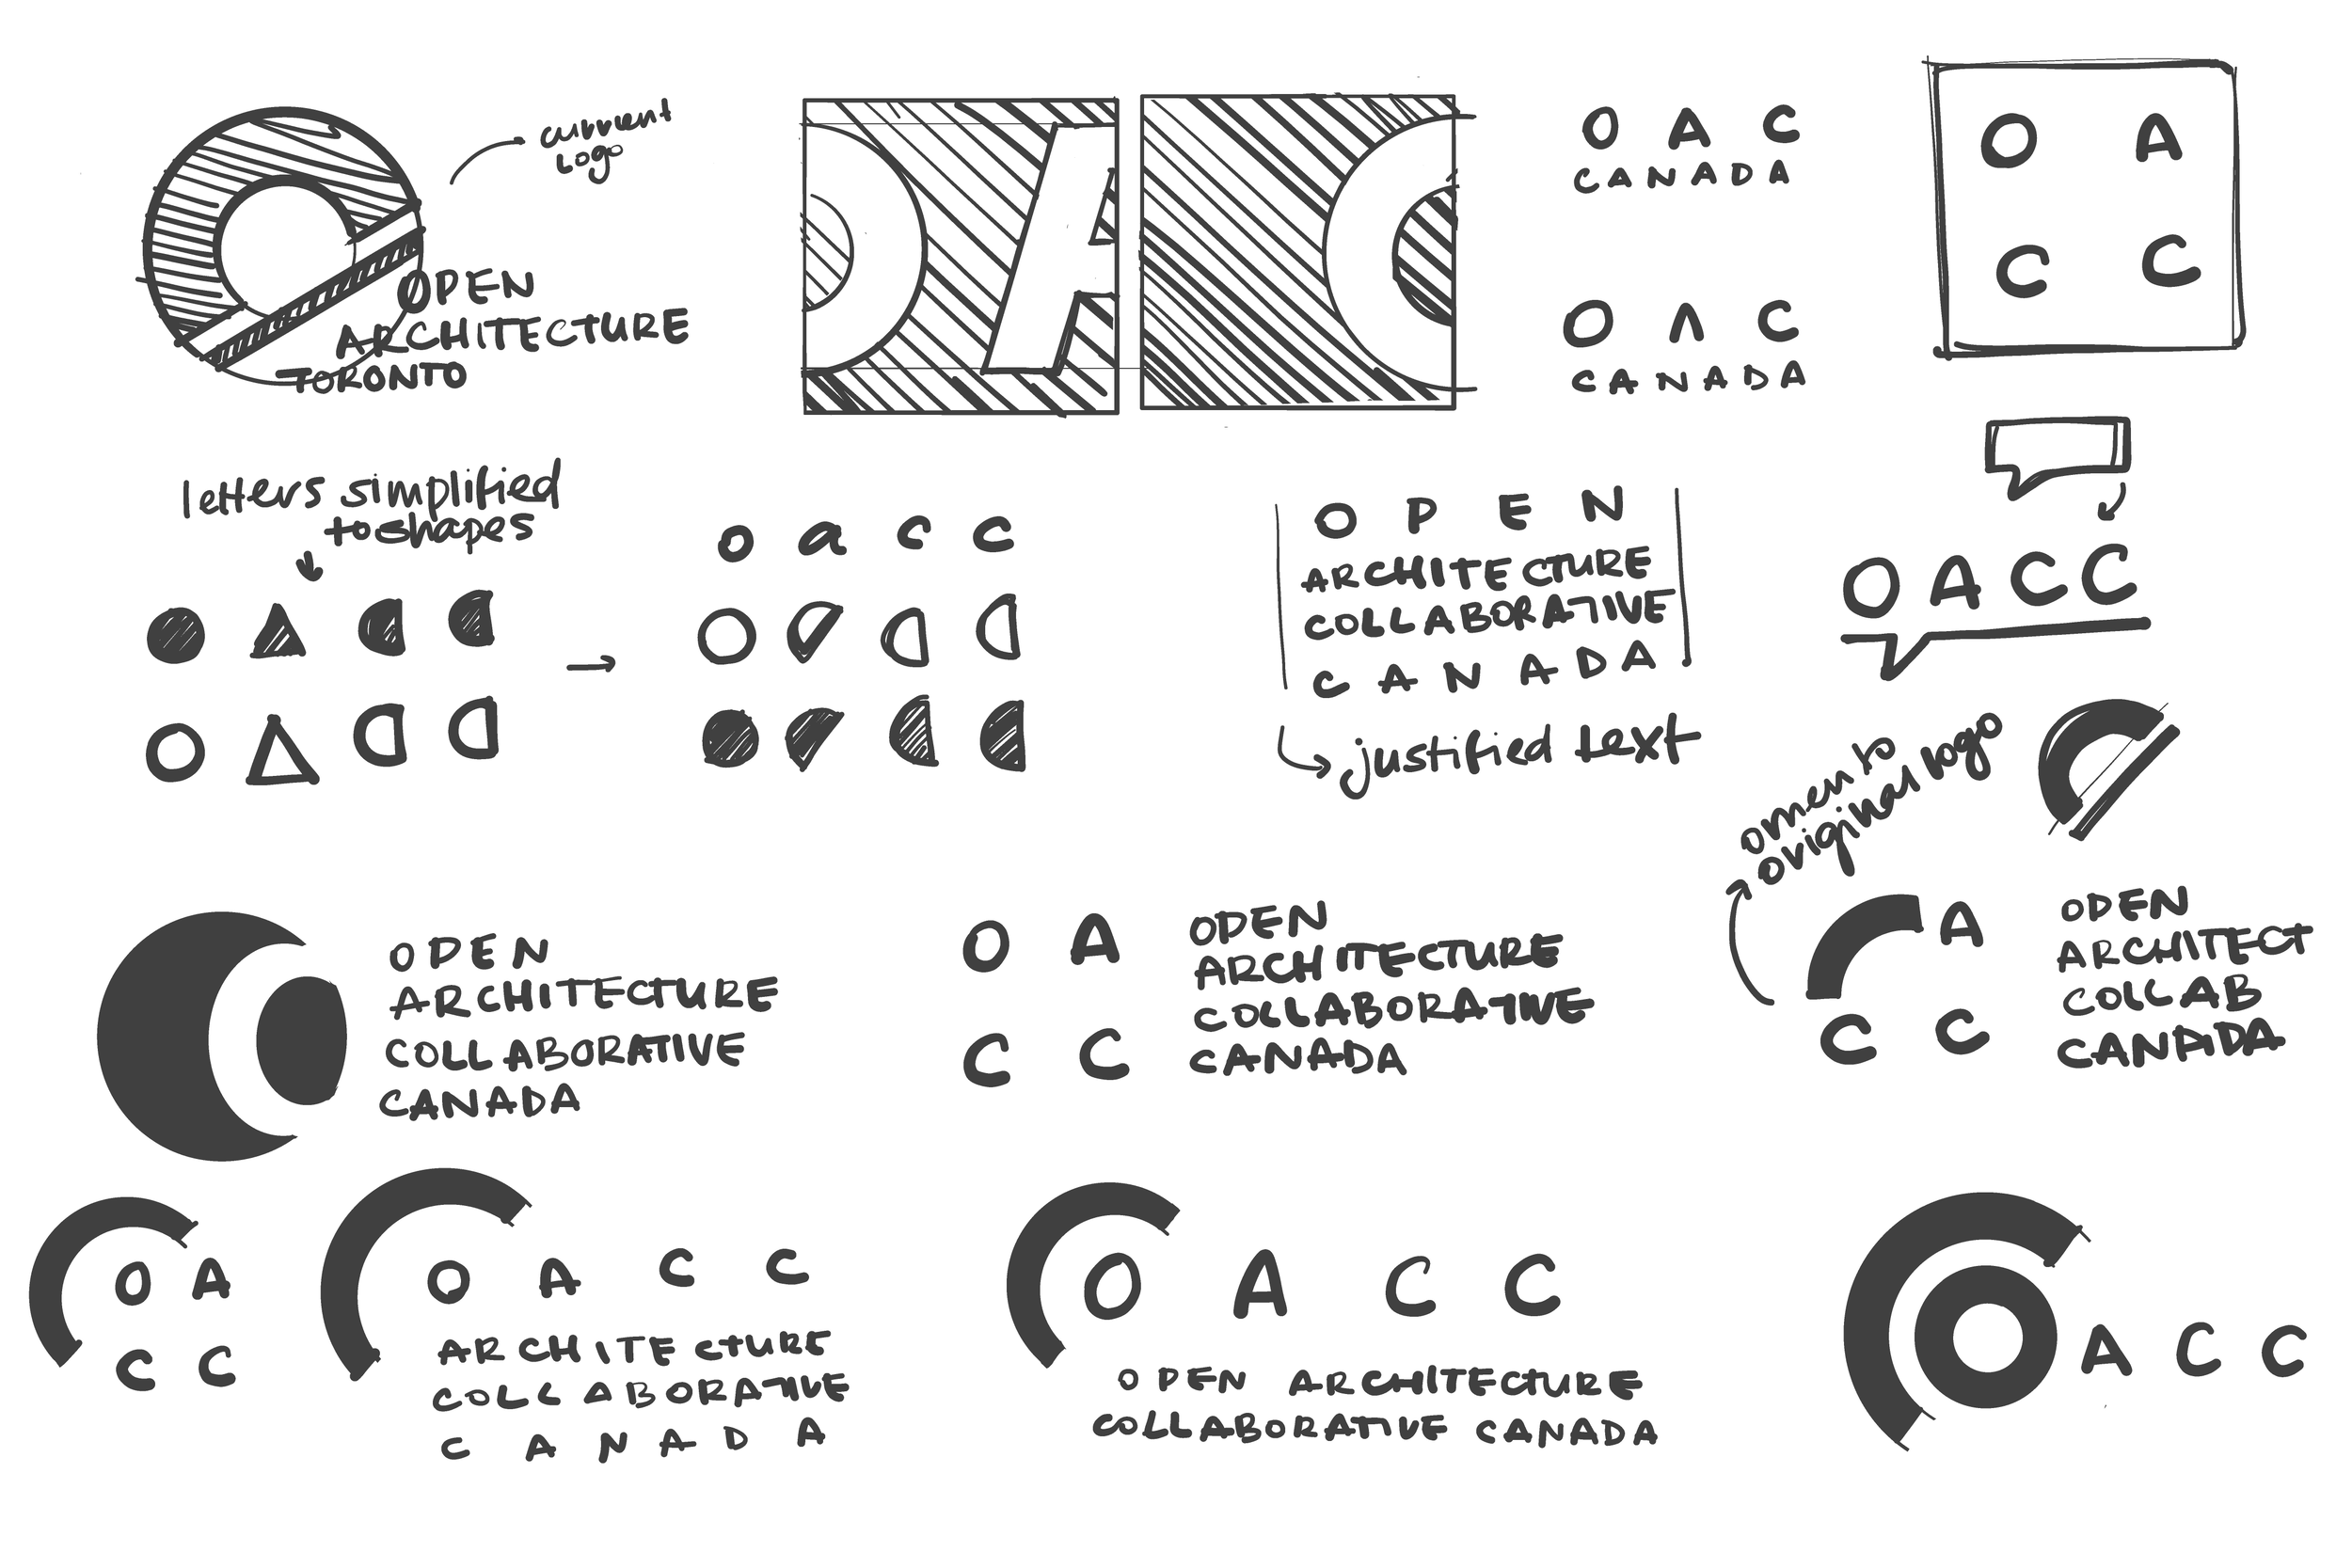 current
logo
OPEN
ARCHITECTURE
TORONTO
O A C
CANADA
O Λ C
CANADA
O A
C C
letters simplified
to shapes
o a c c
OPEN
ARCHITECTURE
COLLABORATIVE
CANADA
justified text
OACC
omen to
original logo
OPEN
ARCHITECTURE
COLLABORATIVE
CANADA
O A
C C
OPEN
ARCHITECTURE
COLLABORATIVE
CANADA
A
C C
OPEN
ARCHITECT
COLLAB
CANADA
O A
C C
O A C C
ARCHITECTURE
COLLABORATIVE
CANADA
O A C C
OPEN ARCHITECTURE
COLLABORATIVE CANADA
A C C